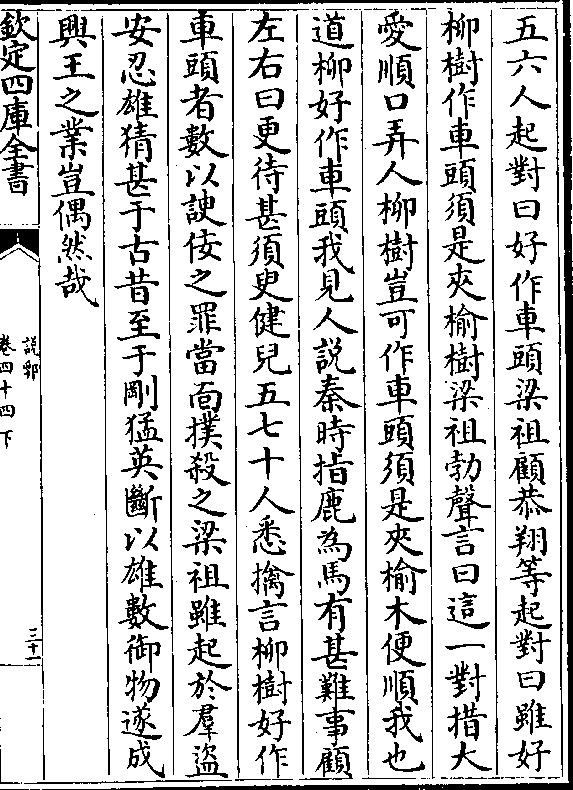 五六人起對曰好作車頭梁祖顧恭翔等起對曰雖好
柳樹作車頭須是夾榆樹梁祖勃聲言曰這一對措大
愛順口弄人柳樹豈可作車頭須是夾榆木便順我也
道柳好作車頭我見人説秦時指鹿為馬有甚難事顧
左右曰更待甚須臾健兒五七十人悉擒言柳樹好作
車頭者數以諛佞之罪當面撲殺之梁祖雖起於羣盜
安忍雄猜甚于古昔至于剛猛英斷以雄數御物遂成
興王之業豈偶然哉
欽定四庫全書
説郛
卷四十四下
三十一